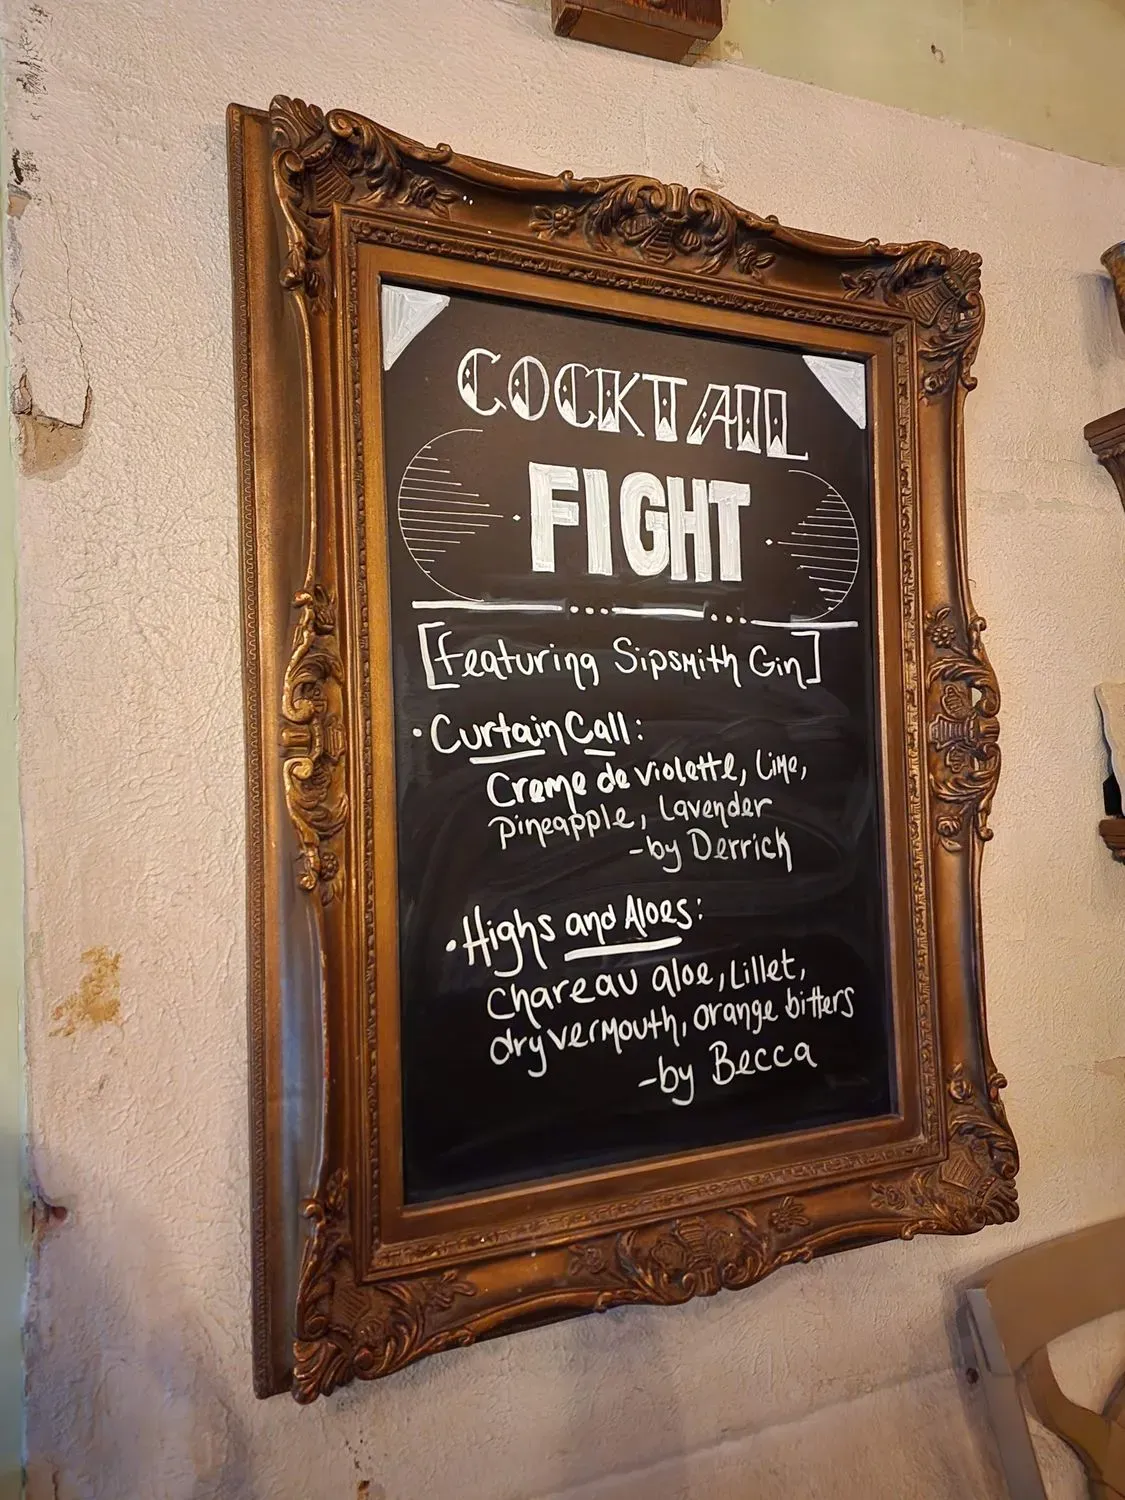 COCKTAIL
FIGHT
[featuring Sipsmith Gin]
• Curtain Call:
Creme de violette, Lime,
pineapple, lavender
-by Derrick
• Highs and Aloes:
Chareau aloe, Lillet,
dry vermouth, orange bitters
-by Becca